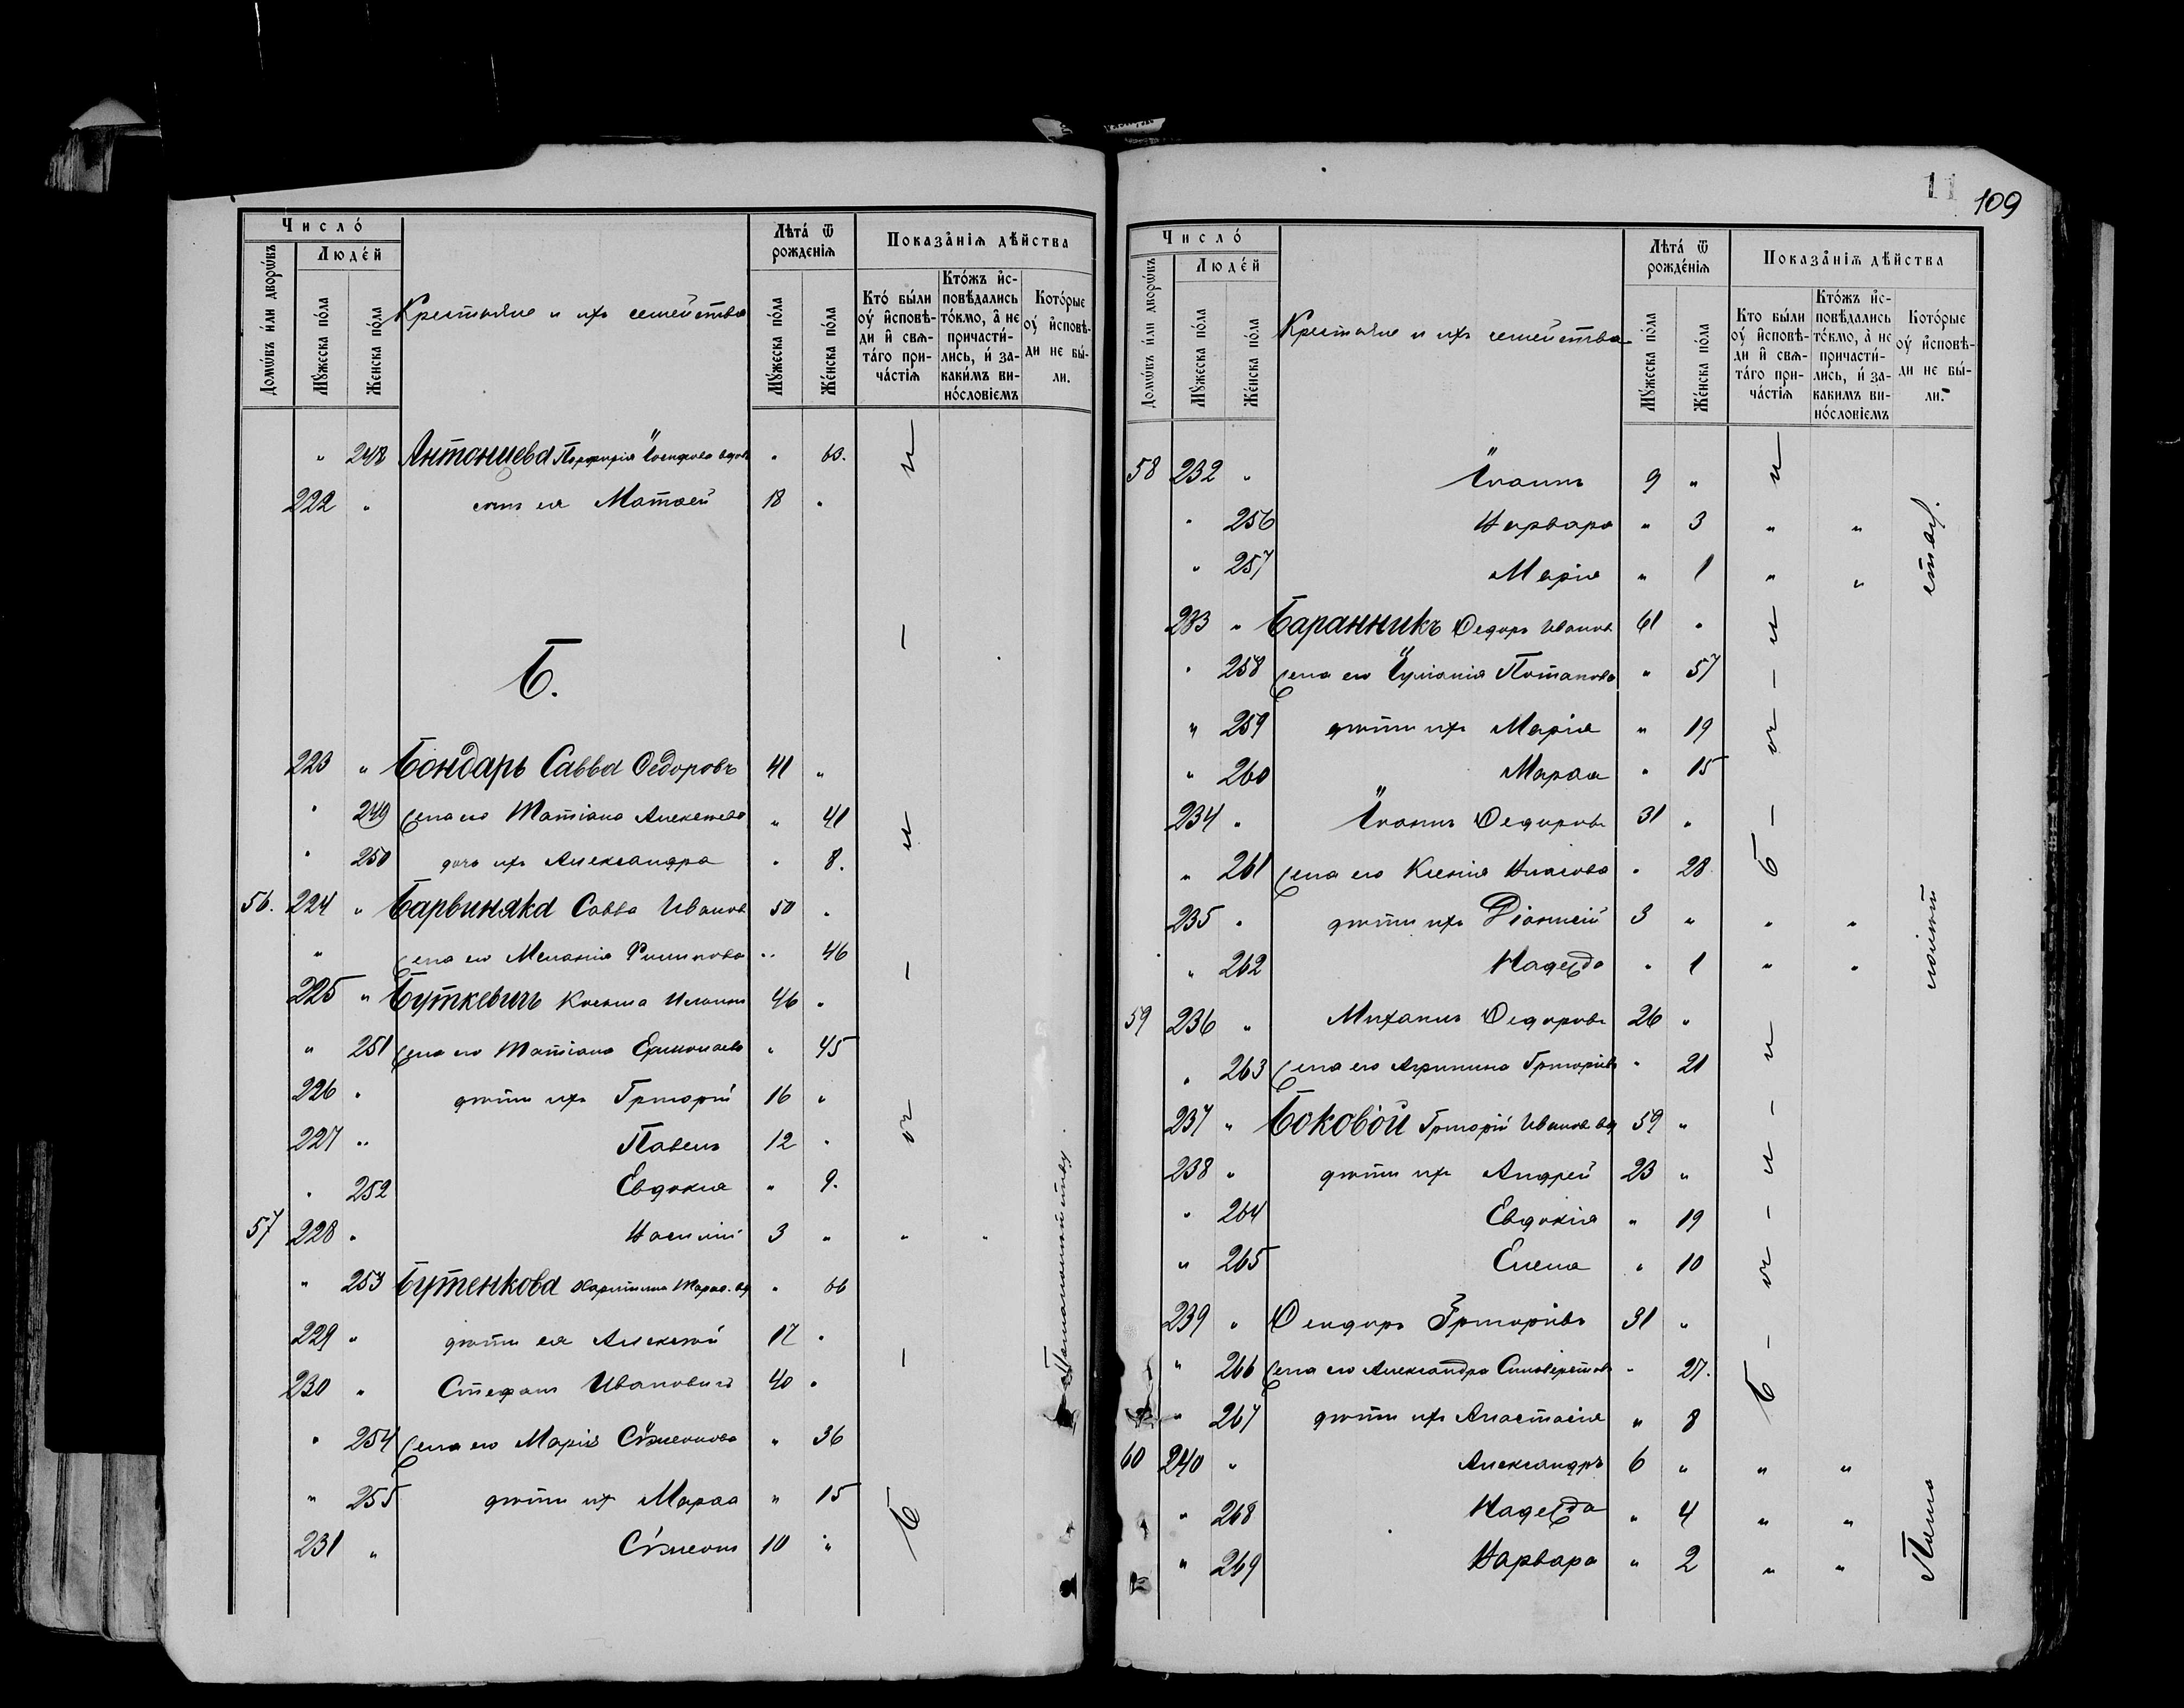 Число́
Домѡ́въ и́ли дворѡ́въ
Люде́й
Му́жеска по́ла
Же́нска по́ла
Крестьяне и ихъ семейства
Лѣта́ ѿ рожденїѧ
Му́жеска по́ла
Же́нска по́ла
Показа́нїѧ дѣ́йства
Кто́ бы́ли оу҆ и҆сповѣ́ди и҆ свѧта́го прича́стїѧ
Кто́жъ и҆сповѣдались то́кмо, а҆ не причасти́лись, и҆ за каки́мъ вино́словїемъ
Кото́рые оу҆ и҆сповѣ́ди не бы́ли.
" 248 Антонцева Порфирія Іосифова вдов. " 63.
222 " сынъ ея Матѳей 18 "
Б.
223 " Бондарь Савва Ѳедоровъ 41 "
" 249 жена его Татіана Алексѣева " 41
" 250 дочь ихъ Александра " 8.
56. 224 " Барвиняка Савва Иванов 50 "
" жена его Меланія Филипова " 46
225 " Буткевичъ Косьма Иванов 46 "
" 251 жена его Татіана Ермолаева " 45
226 " дѣти ихъ Григорій 16 "
227 " Павелъ 12 "
" 252 Евдокія " 9.
57 228 " Василій 3 " " "
" 253 Бутенкова Харитина Тарас. вд " 66
229 " дѣти ея Алексѣй 17 "
230 " Стефанъ Ивановичъ 40 "
" 254 жена его Марія Сѵмеонова " 36
" 255 дѣти ихъ Марѳа " 15
231 " Сѵмеонъ 10 "
и — и — ог — б
109
Число́
Домѡ́въ и́ли дворѡ́въ
Люде́й
Му́жеска по́ла
Же́нска по́ла
Крестьяне и ихъ семейства
Лѣта́ ѿ рожде́нїѧ
Му́жеска по́ла
Же́нска по́ла
Показа́нїѧ дѣ́йства
Кто бы́ли оу҆ и҆сповѣ́ди и҆ свѧта́го прича́стїѧ
Кто́жъ и҆сповѣдались то́кмо, а҆ не причасти́лись, и҆ за каки́мъ вино́словїемъ
Кото́рые оу҆ и҆сповѣ́ди не бы́ли.
58 232 " Іоаннъ 9 "
" 256 Варвара " 3 " "
" 257 Марія " 1 " "
233 " Баранникъ Ѳедоръ Иванов 61 "
" 258 жена его Іуліанія Потапова " 57
" 259 дѣти ихъ Марія " 19
" 260 Марѳа " 15
234 " Іоаннъ Ѳедоровъ 31 "
" 261 жена его Ксенія Власова " 28
235 " дѣти ихъ Діонисій 3 " " "
" 262 Надежда " 1 " "
59 236 " Михаилъ Ѳедоровъ 26 "
" 263 жена его Агрипина Григоріева " 21
237 " Боковой Григорій Иванов вд 59 "
238 " дѣти ихъ Андрей 23 "
" 264 Евдокія " 19
" 265 Елена " 10
239 " Ѳеодоръ Григоріевъ 31 "
" 266 жена его Александра " 27.
" 267 дѣти ихъ Анастасія " 8
60 240 " Александръ 6 " " "
" 268 Надежда " 4 " "
" 269 Варвара " 2 " "
и — и — ог — б
и — и — ог — б